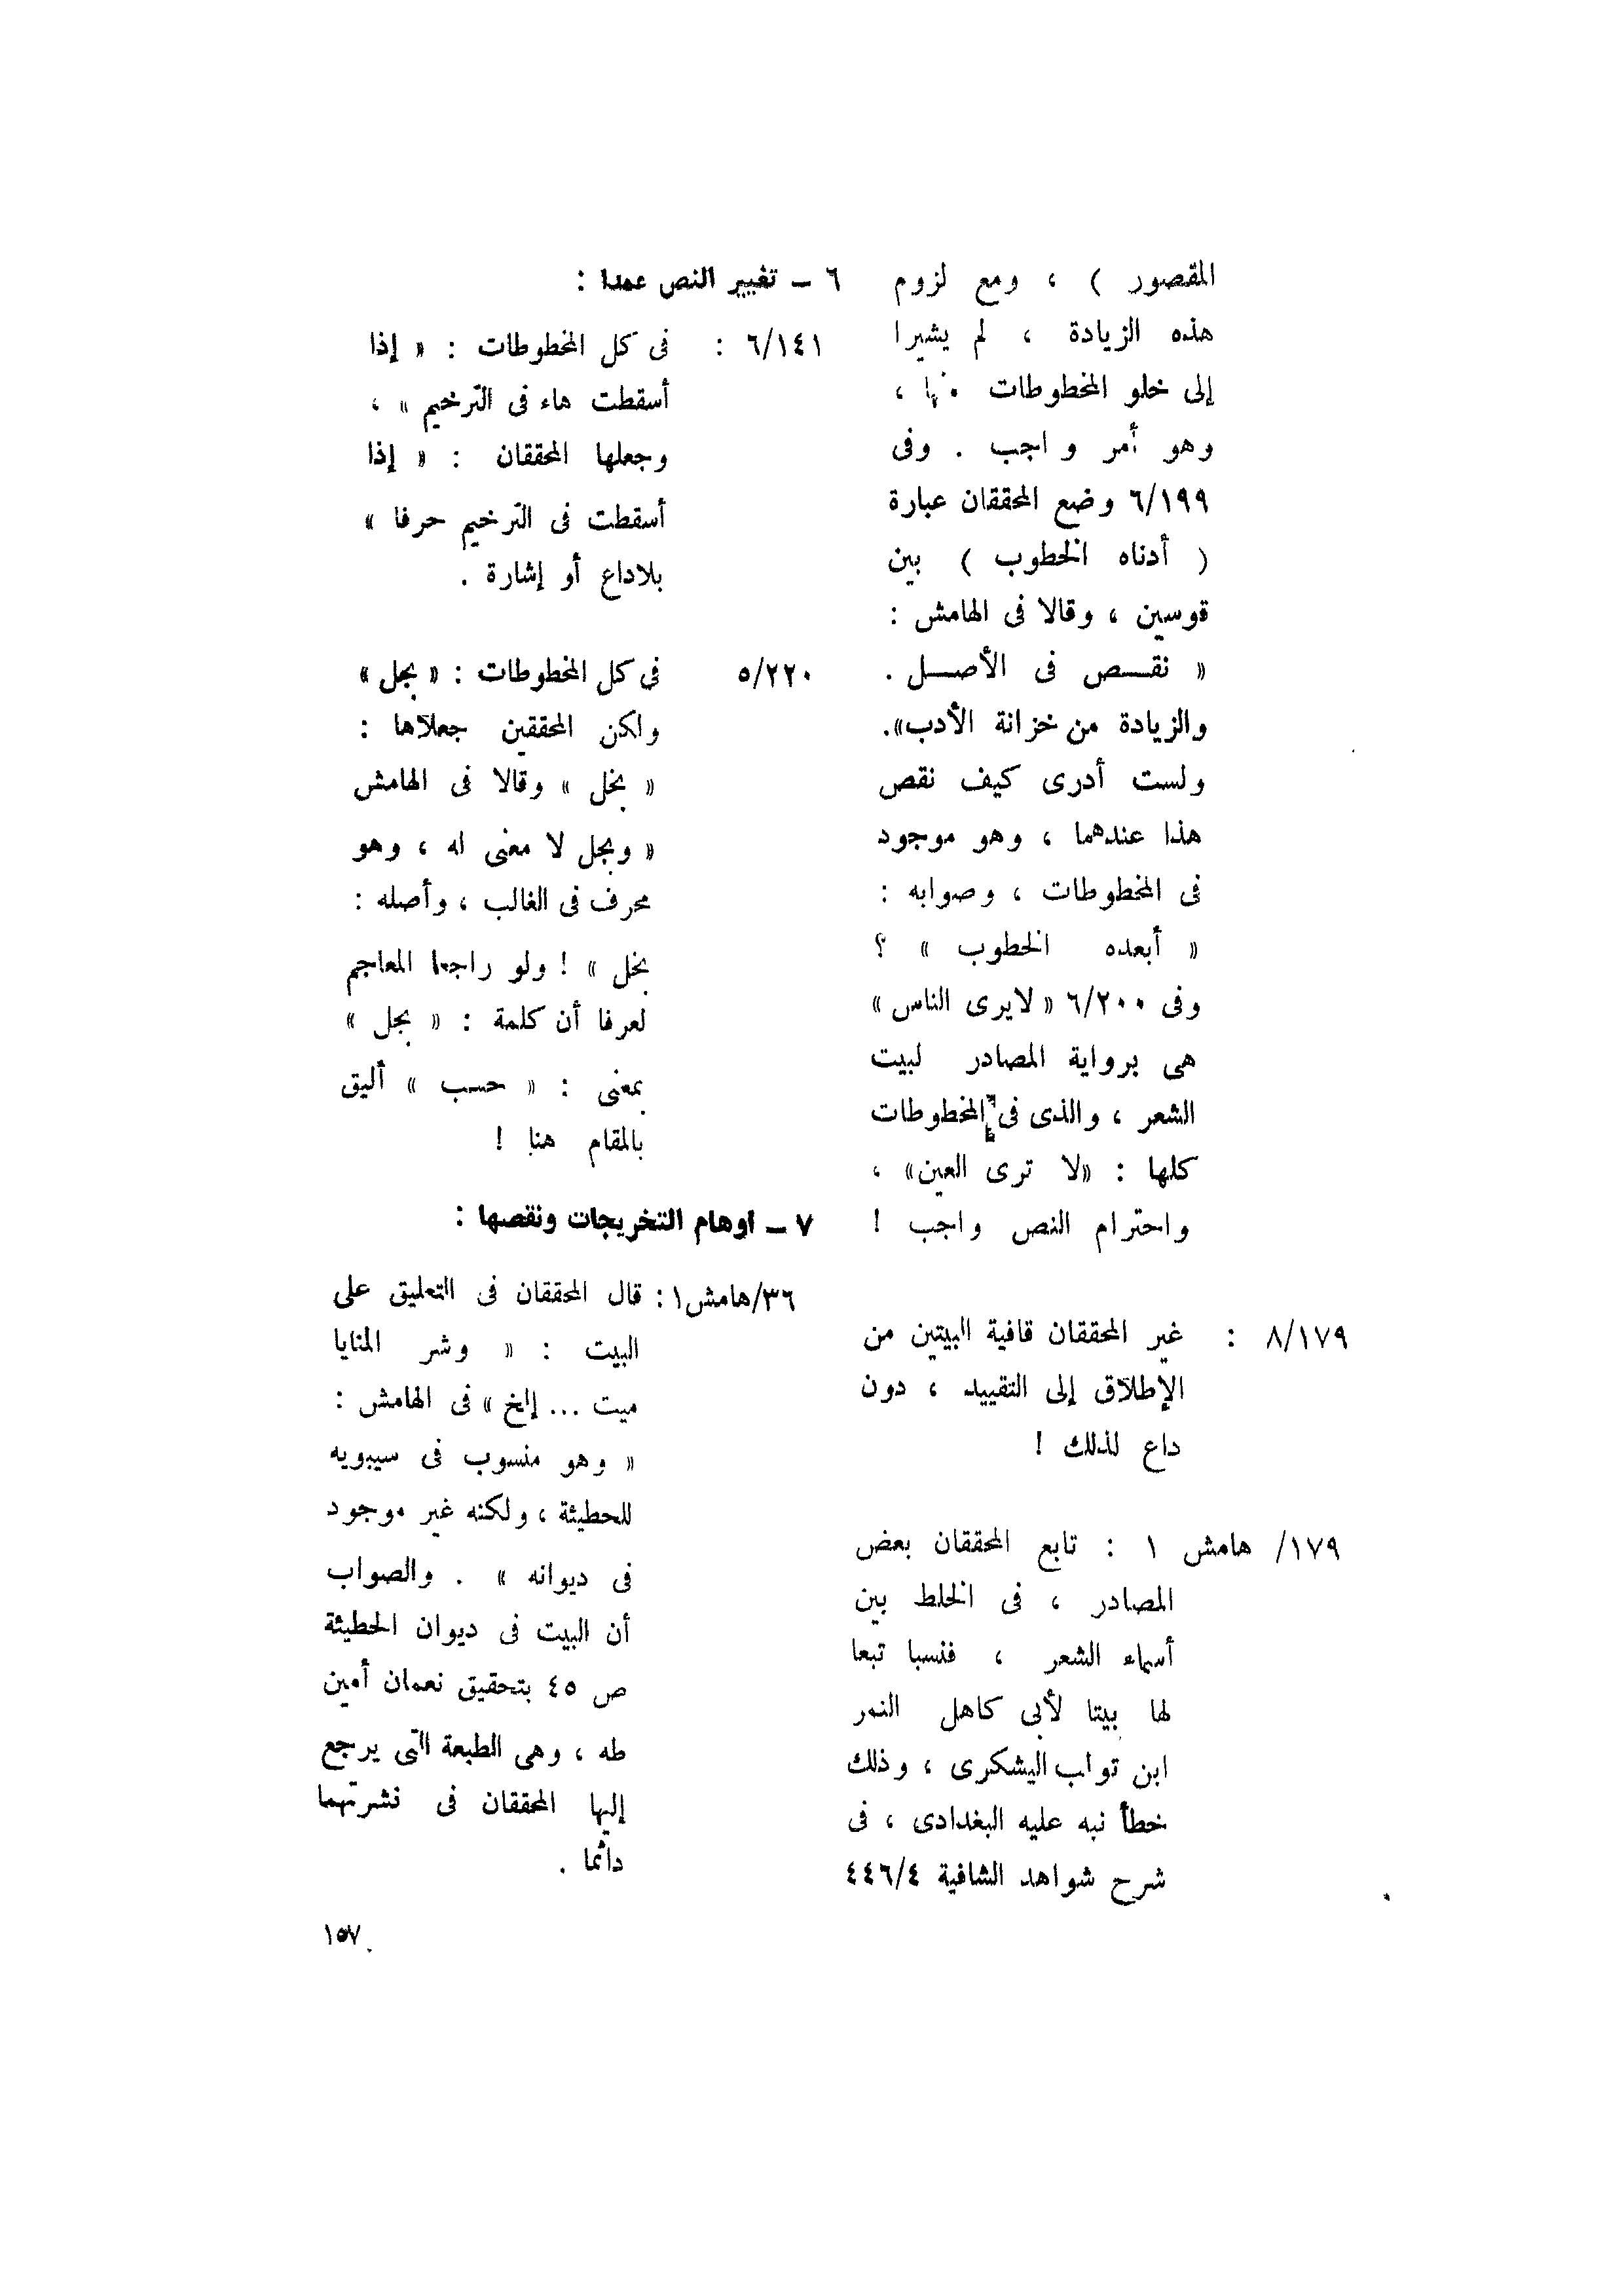 المقصور ) ، ومع لزوم
هذه الزيادة ، لم يشيرا
إلى خلو المخطوطات منها ،
وهو أمر واجب . وفى
٦/١٩٩ وضع المحققان عبارة
( أدناه الخطوب ) بين
قوسين ، وقالا فى الهامش :
« نقــص فى الأصــل .
والزيادة من خزانة الأدب».
ولست أدرى كيف نقص
هذا عندهما ، وهو موجود
فى المخطوطات ، وصوابه :
« أبعده الخطوب » ؟
وفى ٦/٢٠٠ « لايرى الناس »
هى برواية المصادر لبيت
الشعر ، والذى فى المخطوطات
كلها : «لا ترى العين» ،
واحترام النص واجب !
٨/١٧٩ : غير المحققان قافية البيتين من
الإطلاق إلى التقييد ، دون
داع لذلك !
١٧٩/ هامش ١ : تابع المحققان بعض
المصادر ، فى الخلط بين
أسماء الشعر ، فنسبا تبعا
لها بيتا لأبى كاهل النمر
ابن تولب اليشكرى ، وذلك
خطأ نبه عليه البغدادى ، فى
شرح شواهد الشافية ٤٤٦/٤
٦ – تغيير النص عمدا :
٦/١٤١ : فى كل المخطوطات : « إذا
أسقطت هاء فى الترخيم » ،
وجعلها المحققان : « إذا
أسقطت فى الترخيم حرفا »
بلاداع أو إشارة .
٥/٢٢٠ فى كل المخطوطات : « بجل »
ولكن المحققين جعلاها :
« بخل » وقالا فى الهامش
« وبجل لا معنى له ، وهو
محرف فى الغالب ، وأصله :
بخل » ! ولو راجعا المعاجم
لعرفا أن كلمة : « بجل »
بمعنى : « حسب » أليق
بالمقام هنا !
٧ – اوهام التخريجات ونقصها :
٣٦/هامش١: قال المحققان فى التعليق على
البيت : « وشر المنايا
ميت ... إلخ » فى الهامش :
« وهو منسوب فى سيبويه
للحطيئة ، ولكنه غير موجود
فى ديوانه » . والصواب
أن البيت فى ديوان الحطيئة
ص ٤٥ بتحقيق نعمان أمين
طه ، وهى الطبعة التى يرجع
إليها المحققان فى نشرتهما
دائما .
١٥٧